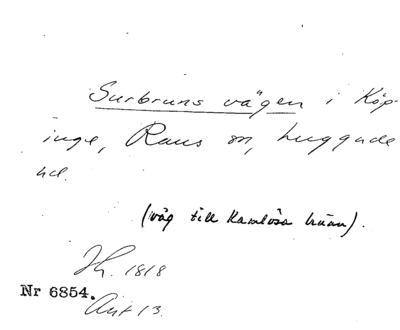 Surbruns vägen i Köp-
inge, Raus sn, Luggude
hd.
(väg till Ramlösa brunn).
Jh. 1818
Nr 6854.
Akt 13.